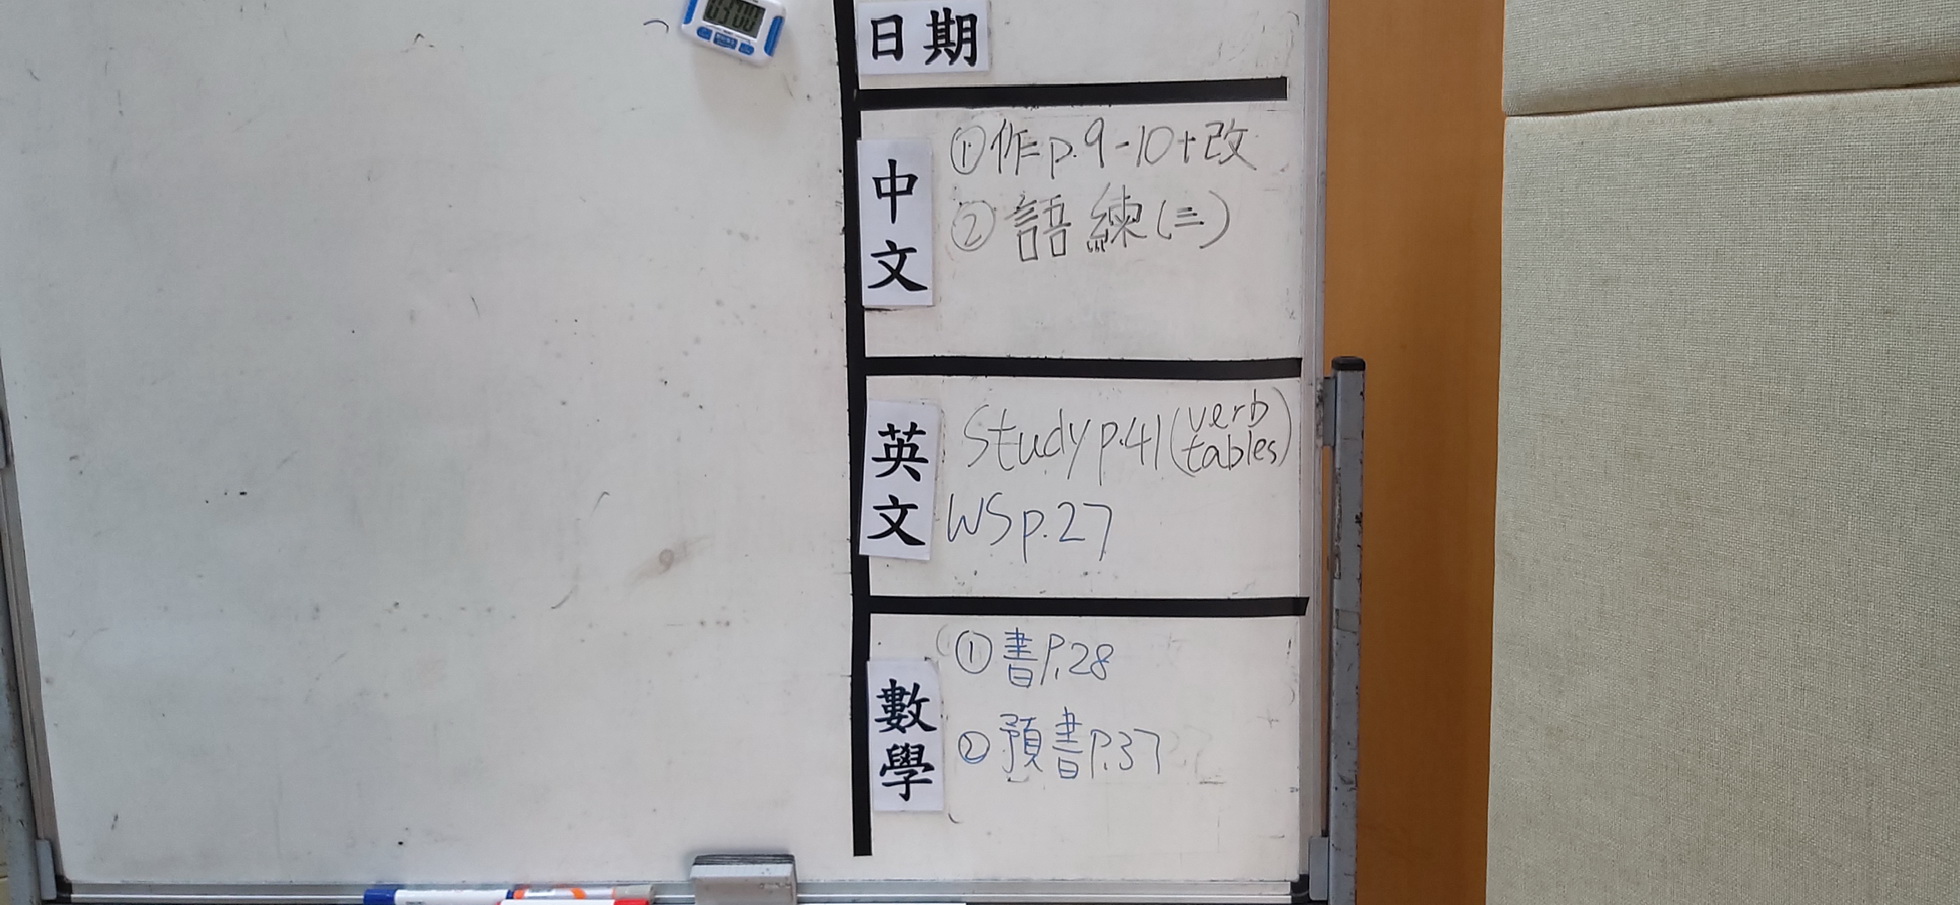 日期
中文
①作p.9-10+改
②語練(三)
英文
Study p.41(verb tables)
WS p.27
數學
①書P.28
②預書P.37